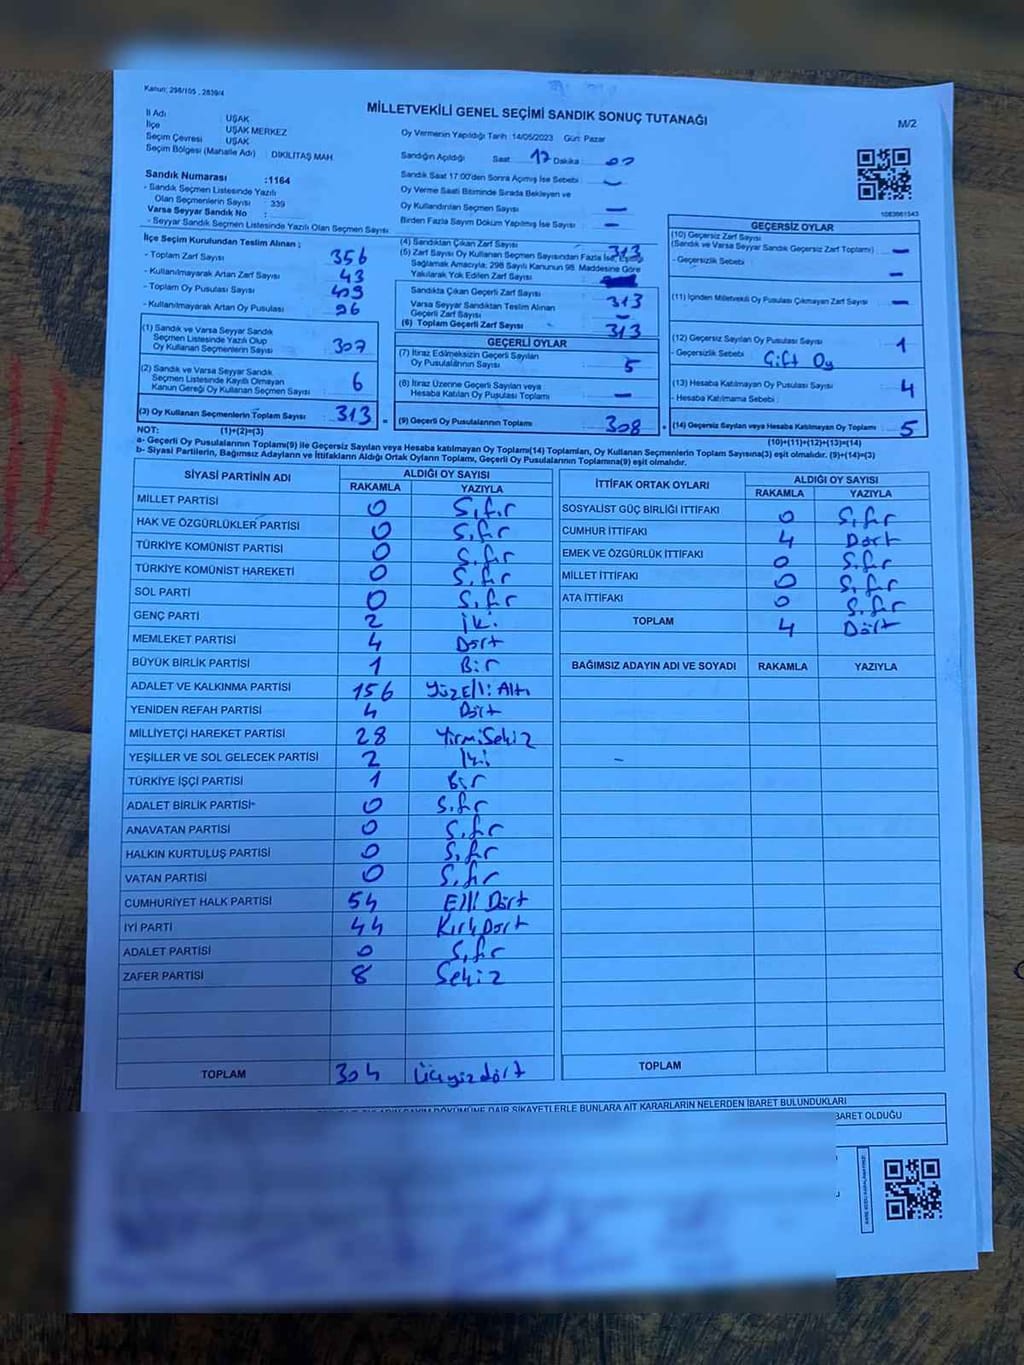 Kanun: 298/105 , 2839/4
MİLLETVEKİLİ GENEL SEÇİMİ SANDIK SONUÇ TUTANAĞI
M/2
İl Adı : UŞAK
İlçe : UŞAK MERKEZ
Seçim Çevresi : UŞAK
Seçim Bölgesi (Mahalle Adı) : DİKİLİTAŞ MAH.
Sandık Numarası :1164
- Sandık Seçmen Listesinde Yazılı
Olan Seçmenlerin Sayısı : 339
Varsa Seyyar Sandık No :
- Seyyar Sandık Seçmen Listesinde Yazılı Olan Seçmen Sayısı
Oy Vermenin Yapıldığı Tarih :14/05/2023 Gün: Pazar
Sandığın Açıldığı Saat 17 Dakika 00
Sandık Saat 17:00'den Sonra Açılmış İse Sebebi : —
Oy Verme Saati Bitiminde Sırada Bekleyen ve
Oy Kullandırılan Seçmen Sayısı : —
Birden Fazla Sayım Döküm Yapılmış İse Sayısı : —
İlçe Seçim Kurulundan Teslim Alınan ;
- Toplam Zarf Sayısı : 356
- Kullanılmayarak Artan Zarf Sayısı : 43
- Toplam Oy Pusulası Sayısı :
- Kullanılmayarak Artan Oy Pusulası :
(1) Sandık ve Varsa Seyyar Sandık
Seçmen Listesinde Yazılı Olup
Oy Kullanan Seçmenlerin Sayısı : 307
(2) Sandık ve Varsa Seyyar Sandık
Seçmen Listesinde Kayıtlı Olmayan
Kanun Gereği Oy Kullanan Seçmen Sayısı : 6
(3) Oy Kullanan Seçmenlerin Toplam Sayısı : 313
(4) Sandıktan Çıkan Zarf Sayısı : 313
(5) Zarf Sayısı Oy Kullanan Seçmen Sayısından Fazla İse, Eşitliği
Sağlamak Amacıyla; 298 Sayılı Kanunun 98. Maddesine Göre
Yakılarak Yok Edilen Zarf Sayısı :
Sandıkta Çıkan Geçerli Zarf Sayısı : 313
Varsa Seyyar Sandıktan Teslim Alınan
Geçerli Zarf Sayısı : —
(6) Toplam Geçerli Zarf Sayısı : 313
GEÇERLİ OYLAR
(7) İtiraz Edilmeksizin Geçerli Sayılan
Oy Pusulalarının Sayısı : 5
(8) İtiraz Üzerine Geçerli Sayılan veya
Hesaba Katılan Oy Pusulası Toplamı : —
(9) Geçerli Oy Pusulalarının Toplamı : 308
1083661543
GEÇERSİZ OYLAR
(10) Geçersiz Zarf Sayısı
(Sandık ve Varsa Seyyar Sandık Geçersiz Zarf Toplamı) : —
- Geçersizlik Sebebi : —
(11) İçinden Milletvekili Oy Pusulası Çıkmayan Zarf Sayısı : —
(12) Geçersiz Sayılan Oy Pusulası Sayısı : 1
- Geçersizlik Sebebi : Çift Oy
(13) Hesaba Katılmayan Oy Pusulası Sayısı : 4
- Hesaba Katılmama Sebebi :
(14) Geçersiz Sayılan veya Hesaba Katılmayan Oy Toplamı : 5
NOT: (1)+(2)=(3)
(10)+(11)+(12)+(13)=(14)
a- Geçerli Oy Pusulalarının Toplamı(9) ile Geçersiz Sayılan veya Hesaba katılmayan Oy Toplamı(14) Toplamları, Oy Kullanan Seçmenlerin Toplam Sayısına(3) eşit olmalıdır. (9)+(14)=(3)
b- Siyasi Partilerin, Bağımsız Adayların ve İttifakların Aldığı Ortak Oyların Toplamı, Geçerli Oy Pusulalarının Toplamına(9) eşit olmalıdır.
SİYASİ PARTİNİN ADI ALDIĞI OY SAYISI
RAKAMLA YAZIYLA
MİLLET PARTİSİ 0 Sıfır
HAK VE ÖZGÜRLÜKLER PARTİSİ 0 Sıfır
TÜRKİYE KOMÜNİST PARTİSİ 0 Sıfır
TÜRKİYE KOMÜNİST HAREKETİ 0 Sıfır
SOL PARTİ 0 Sıfır
GENÇ PARTİ 2 İki
MEMLEKET PARTİSİ 4 Dört
BÜYÜK BİRLİK PARTİSİ 1 Bir
ADALET VE KALKINMA PARTİSİ 156 YüzElli Altı
YENİDEN REFAH PARTİSİ 4 Dört
MİLLİYETÇİ HAREKET PARTİSİ 28 YirmiSekiz
YEŞİLLER VE SOL GELECEK PARTİSİ 2 İki
TÜRKİYE İŞÇİ PARTİSİ 1 Bir
ADALET BİRLİK PARTİSİ 0 Sıfır
ANAVATAN PARTİSİ 0 Sıfır
HALKIN KURTULUŞ PARTİSİ 0 Sıfır
VATAN PARTİSİ 0 Sıfır
CUMHURİYET HALK PARTİSİ 54 Elli Dört
İYİ PARTİ 44 Kırk Dört
ADALET PARTİSİ 0 Sıfır
ZAFER PARTİSİ 8 Sekiz
TOPLAM 304 Üçyüzdört
İTTİFAK ORTAK OYLARI ALDIĞI OY SAYISI
RAKAMLA YAZIYLA
SOSYALİST GÜÇ BİRLİĞİ İTTİFAKI 0 Sıfır
CUMHUR İTTİFAKI 4 Dört
EMEK VE ÖZGÜRLÜK İTTİFAKI 0 Sıfır
MİLLET İTTİFAKI 0 Sıfır
ATA İTTİFAKI 0 Sıfır
TOPLAM 4 Dört
BAĞIMSIZ ADAYIN ADI VE SOYADI RAKAMLA YAZIYLA
–
TOPLAM
DÖKÜMÜNE DAİR ŞİKAYETLERLE BUNLARA AİT KARARLARIN NELERDEN İBARET BULUNDUKLARI
İBARET OLDUĞU